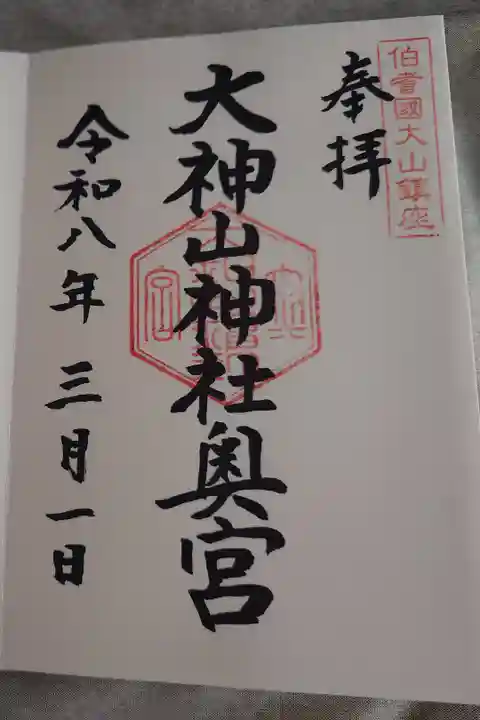 伯耆國大山鎮座
奉拝
大神山神社奥宮
令和八年 三月一日